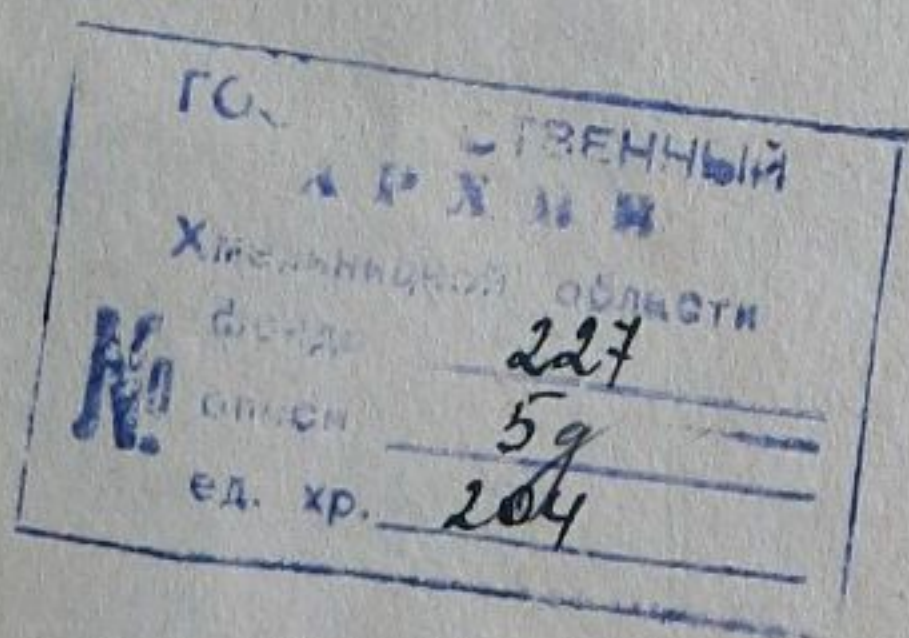 ГО...СТВЕННЫЙ
АРХИВ
Хмельницкой области
№ фонда 227
описи 5д
ед. хр. 204